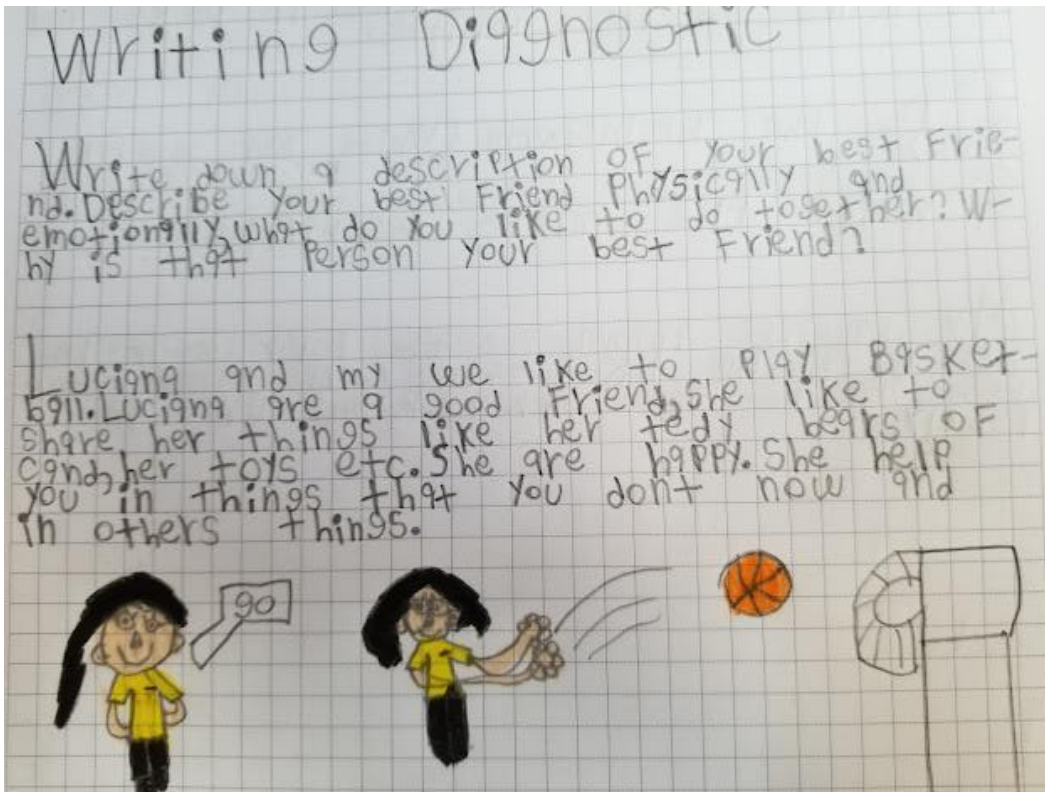 Writing Diagnostic
Write down a description OF your best Frie-
nd. Describe your best Friend Physically and
emotionally, what do you like to do together? W-
hy is that Person your best Friend?
Luciana and my we like to Play Basket-
ball. Luciana are a good Friend, she like to
share her things like her tedy bears OF
cand, her toys etc. She are happy. She help
you in things that you dont now and
in others things.
go